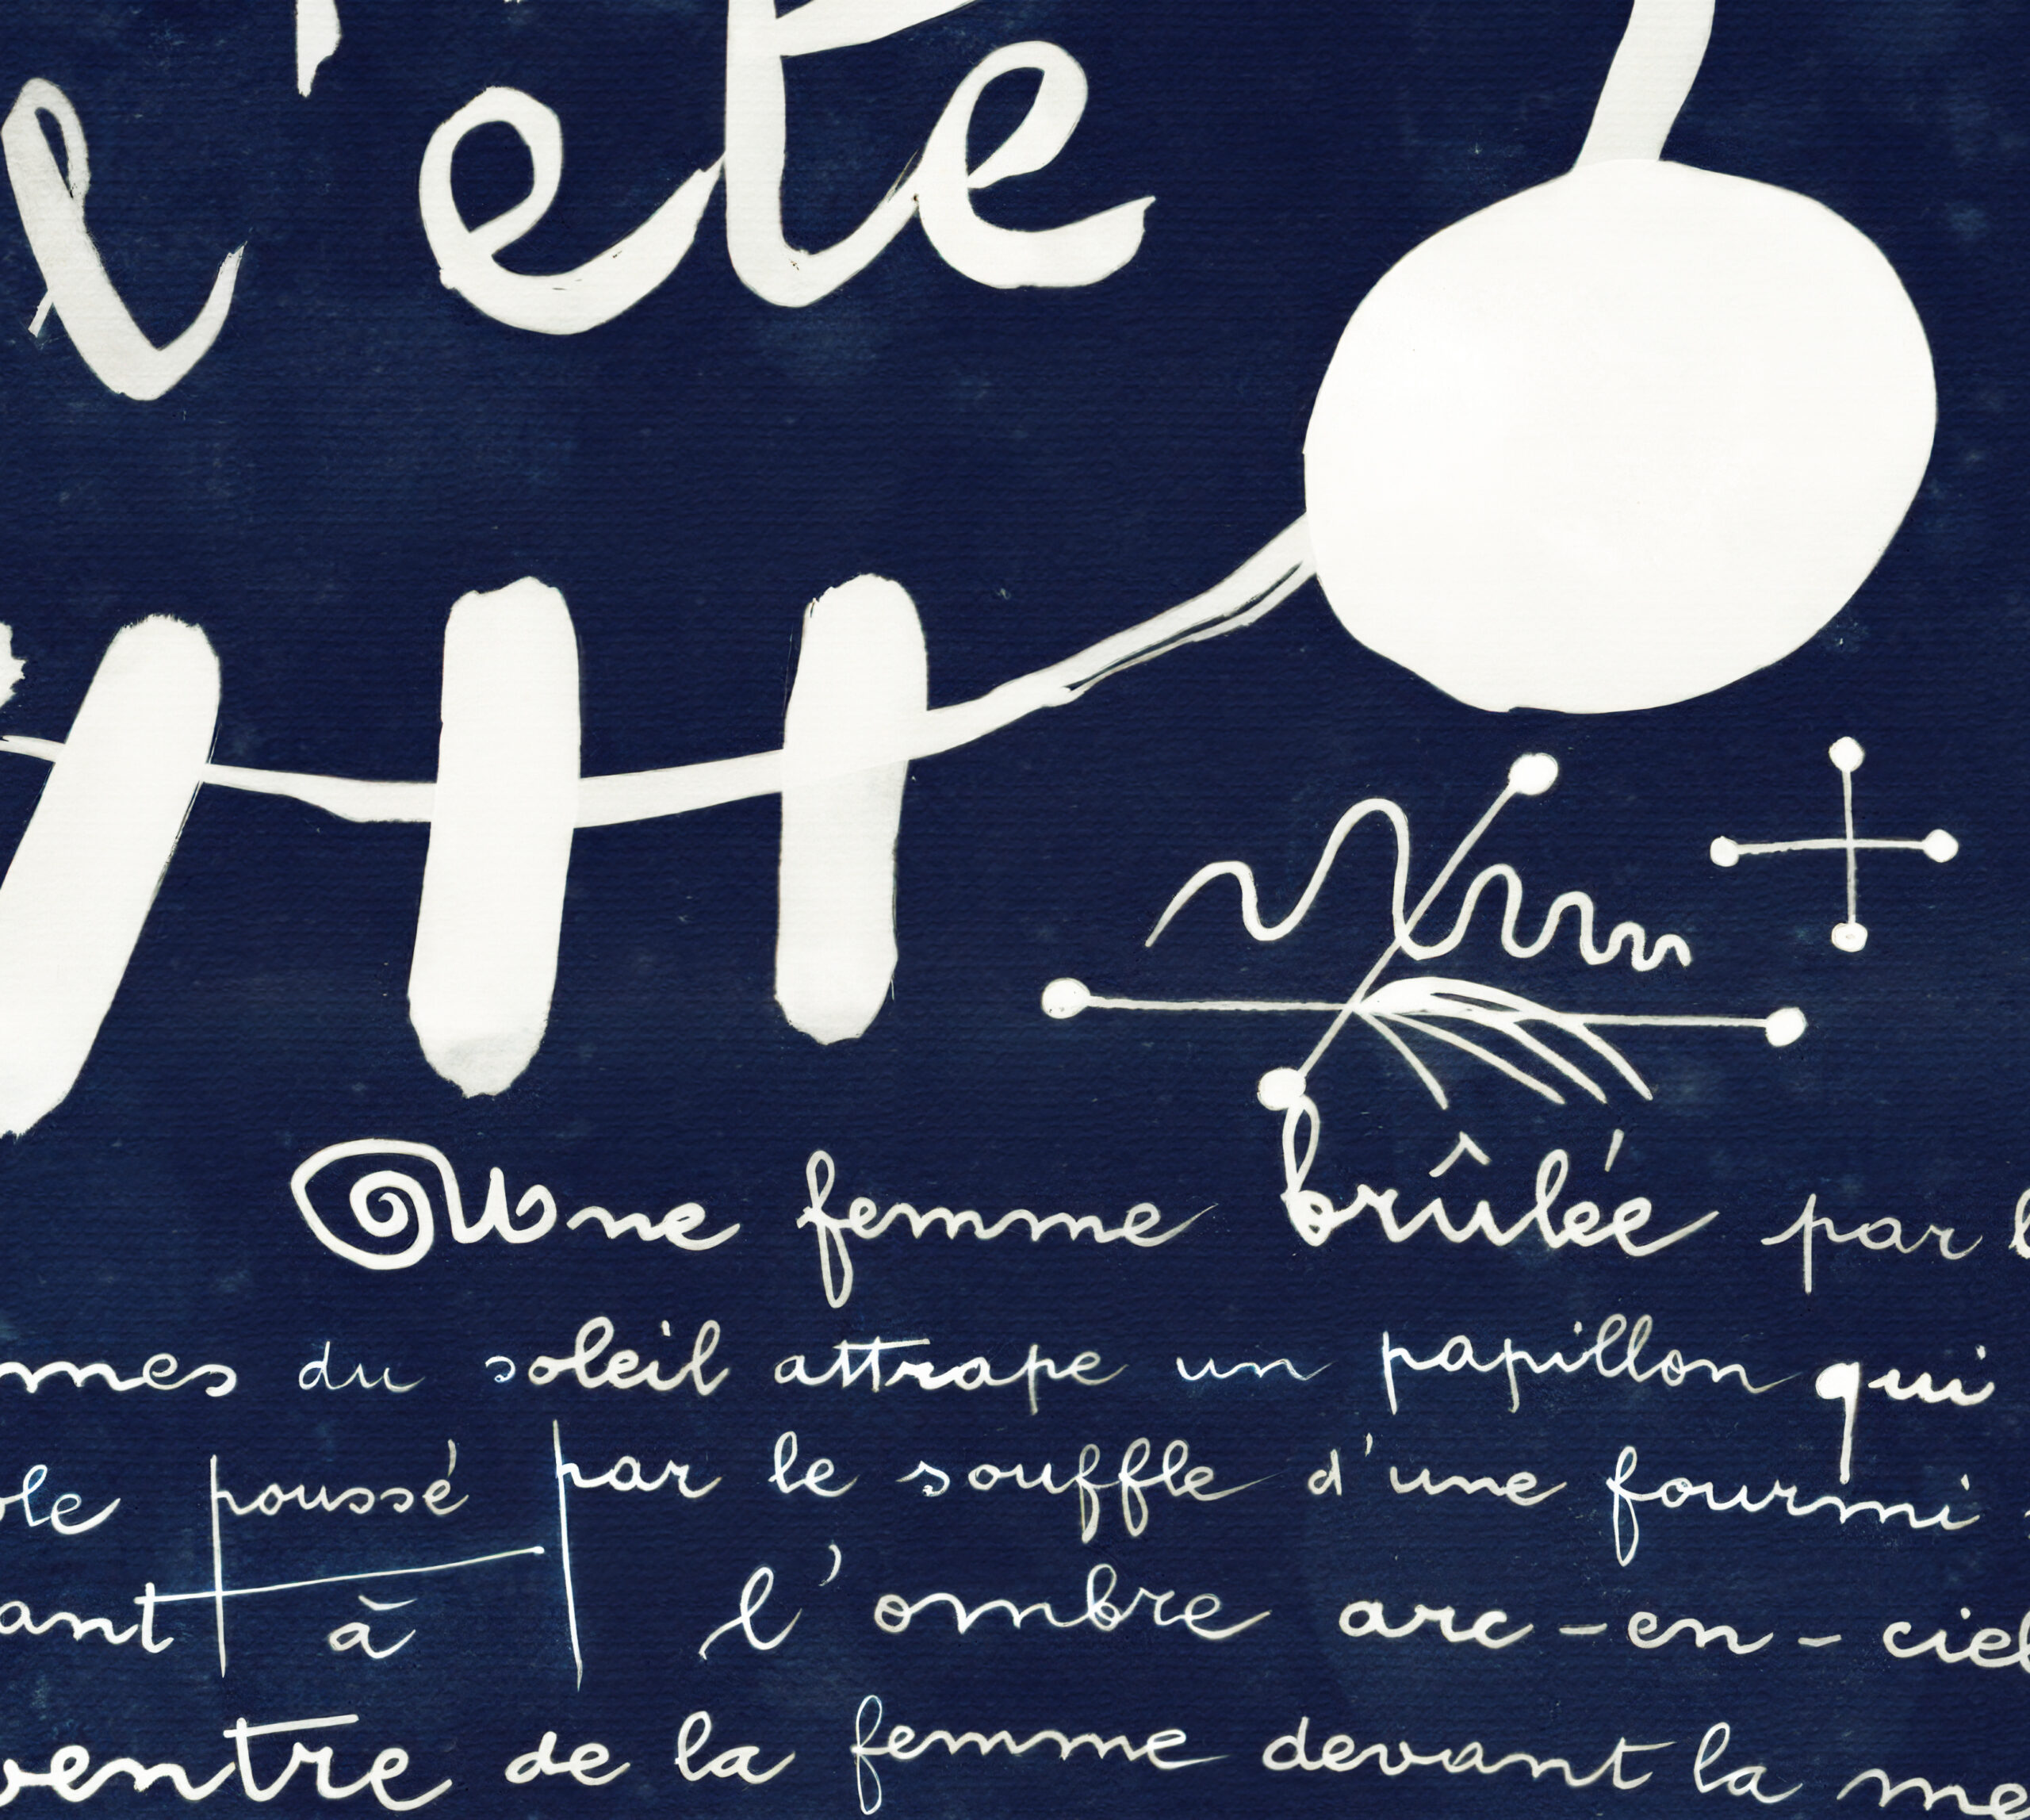 l'été
Une femme brûlée par l
mmes du soleil attrape un papillon qui
ole poussé par le souffle d'une fourmi
ant à l'ombre arc-en-ciel
ventre de la femme devant la me